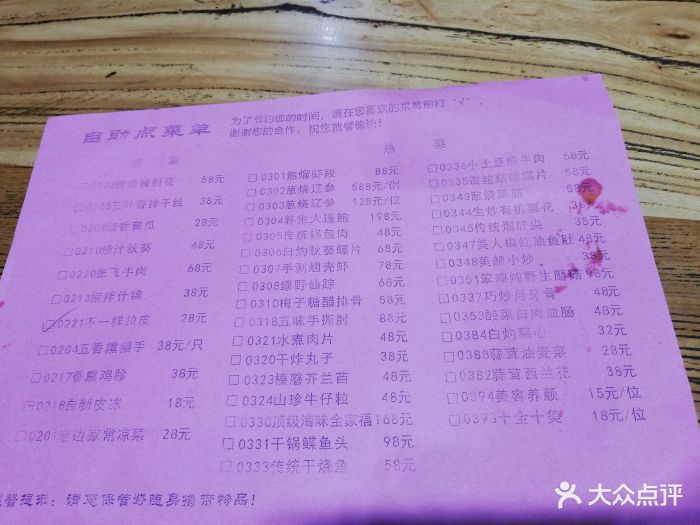 自助点菜单
为了节约您的时间，请在您喜欢的菜肴前打“√”，
谢谢您的合作，祝您就餐愉快！
凉 菜
□0202传统酱肘花 58元
□0205三叶香拌干丝 38元
黄瓜 28元
□0210捞汁秋葵 48元
□0220张飞牛肉 68元
□0213捞拌什锦 38元
□0221不一样拉皮 28元
□0204五香熏猪手 38元/只
□0217香熏鸡胗 38元
□0218自制皮冻 18元
□0201老边家常凉菜 28元
热 菜
□0301焦熘虾段 88元
□0302葱烧辽参 588元/例
□0303葱烧辽参 128元/位
□0304养生大连鲍 198元
□0305传统锅包肉 48元
□0306白灼秋葵螺片 68元
□0307手剥翅壳虾 78元
□0308绿野仙踪 68元
□0310梅子糖醋排骨 58元
□0318五味手撕肘 88元
□0321水煮肉片 48元
□0320干炸丸子 38元
□0323榛蘑芥兰苗 48元
□0324山珍牛仔粒 48元
□0330顶级海味全家福 168元
□0331干锅鲽鱼头 98元
□0333传统干烧鱼 58元
□0336小土豆烧牛肉 58元
□0335杏鲍菇爆螺片 58元
□0343葱烧蹄筋 58元
□0344生炒有机菜花 38元
□0345传统熘肝尖 38元
□0347美人椒红油鱼肚 48元
□0348美颜小炒 38元
□0351笨鸡炖野生蘑菇 98元
□0337巧炒月牙骨 48元
□0353酸菜白肉血肠 48元
□0384白灼菜心 32元
□0388蒜茸油麦菜 28元
□0382蒜茸西兰花 38元
□0394美容养颜 15元/位
□0393十全十美 18元/位
温馨提示：请您保管好随身携带物品！
大众点评